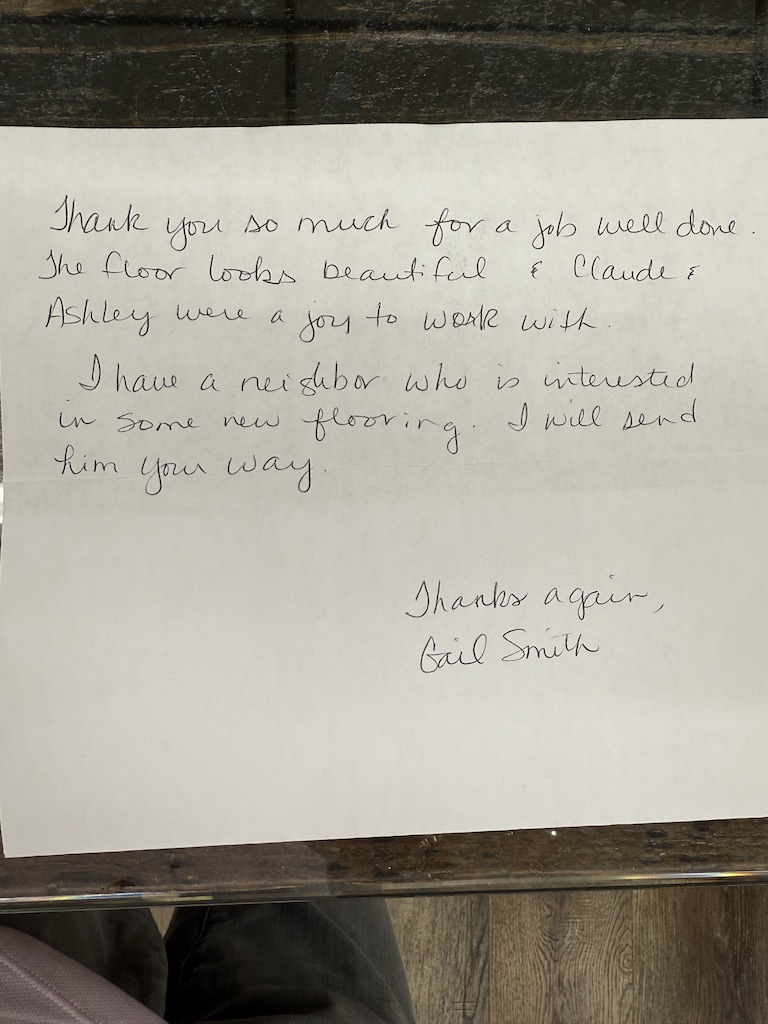 Thank you so much for a job well done.
The floor looks beautiful & Claude &
Ashley were a joy to work with.
I have a neighbor who is interested
in some new flooring. I will send
him your way.
Thanks again,
Gail Smith